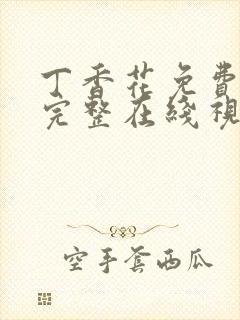 丁香花免費
完整在綫視
空手套西瓜